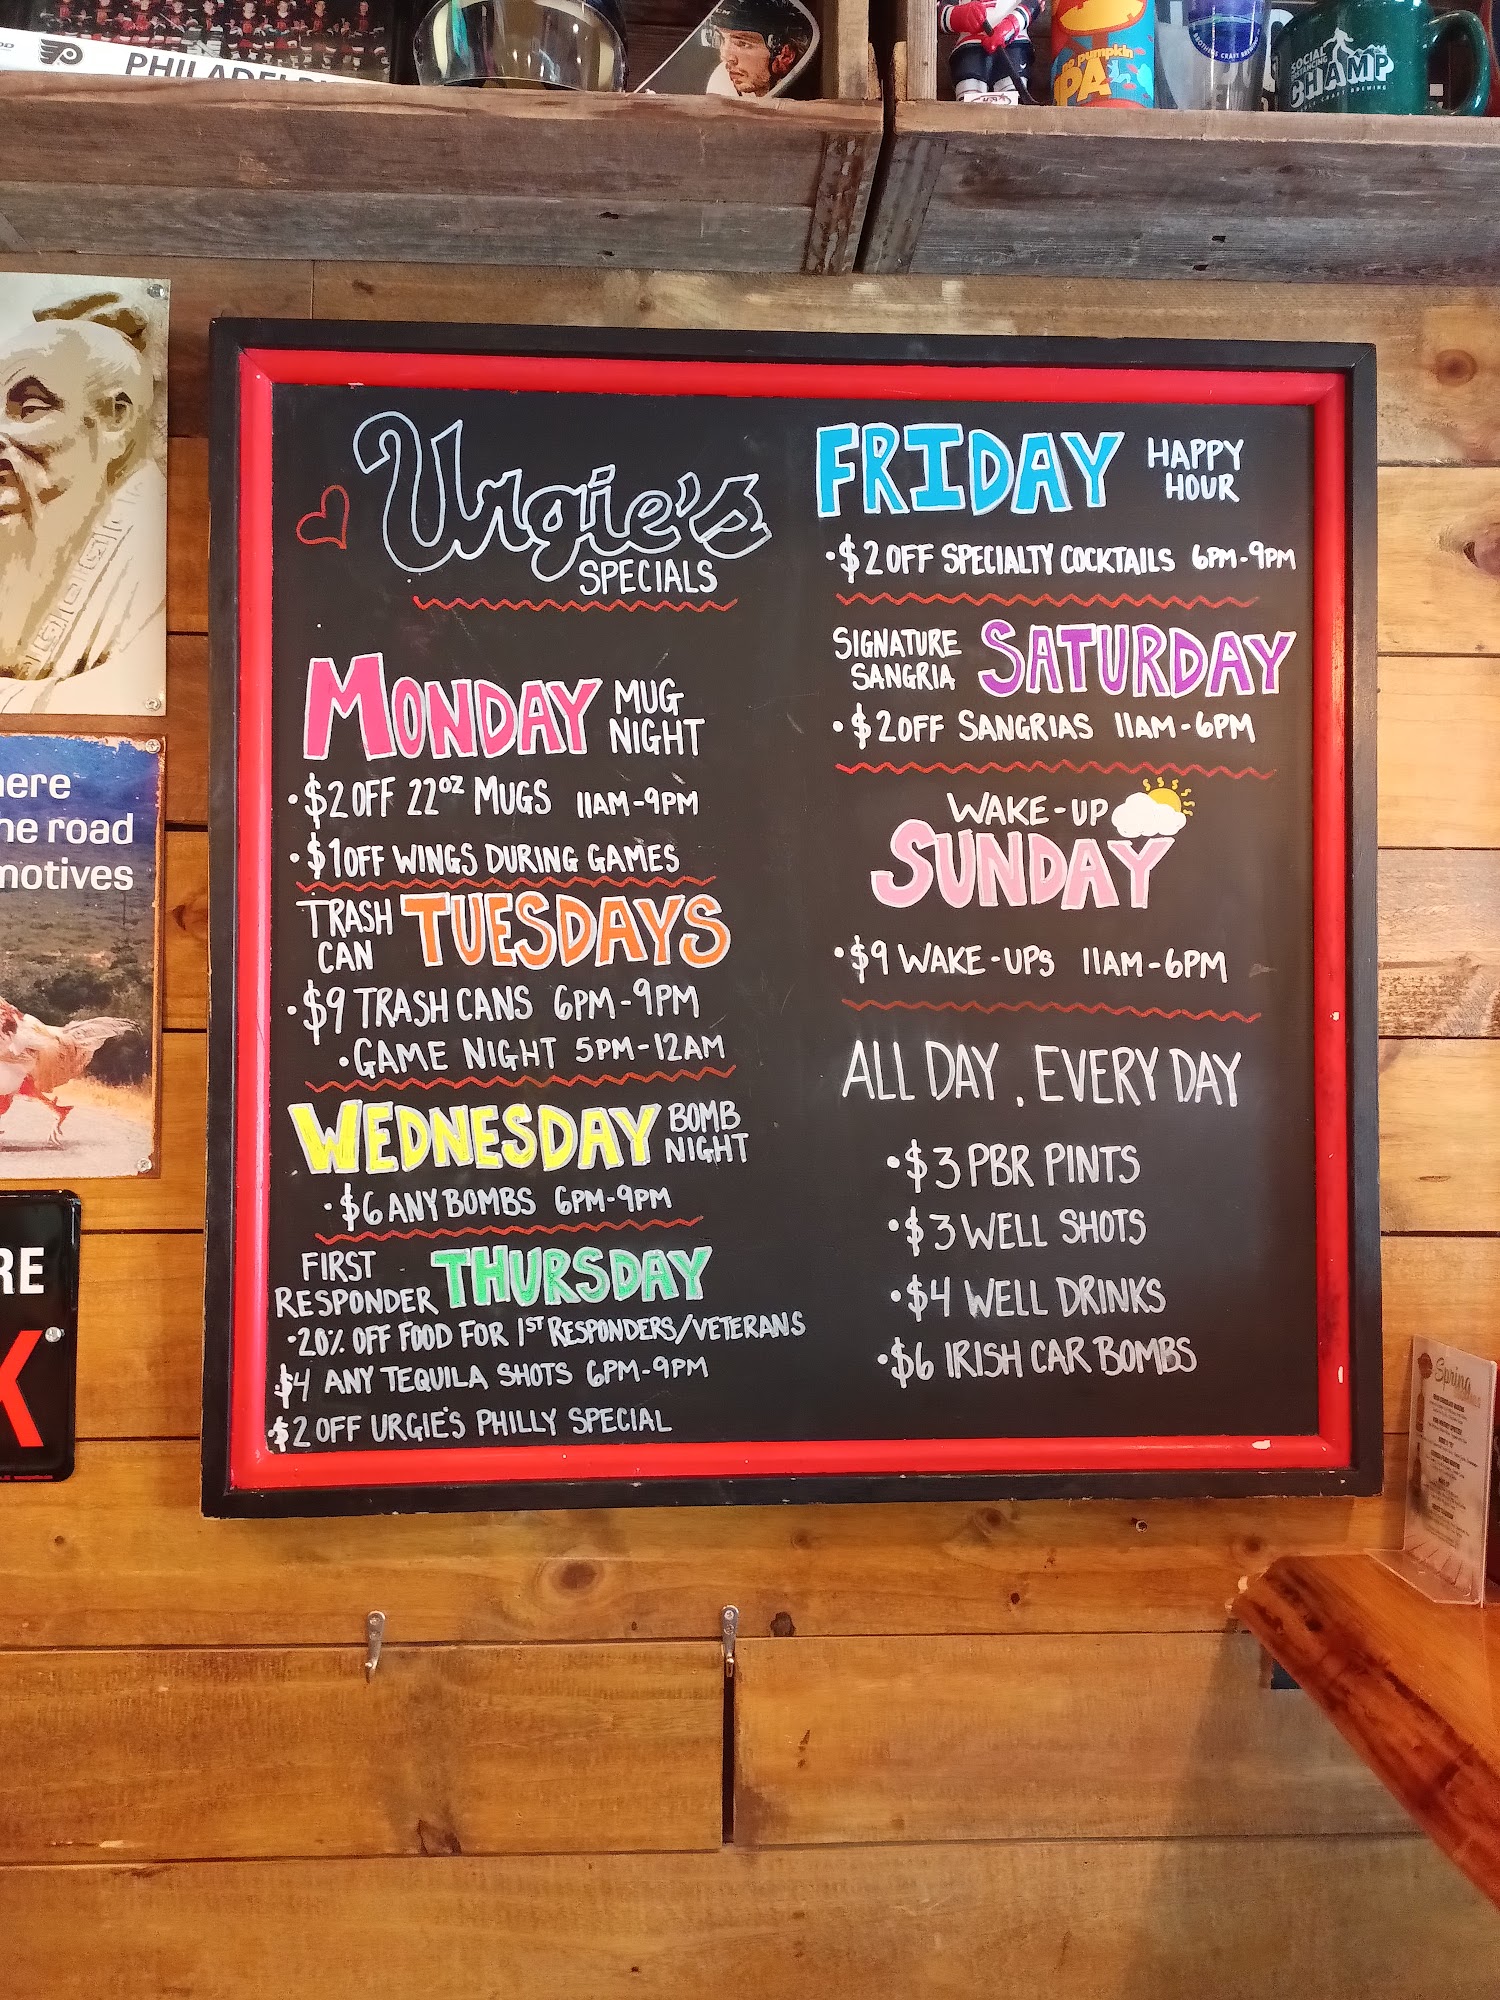 PHILADELP
no pumpkin
IPA
BROTHERS CRAFT BREWING
SOCIAL
DISTANCING
CHAMP
CRAFT BREWING
here
he road
motives
RE
K
Urgie's
SPECIALS
MONDAY MUG NIGHT
•$2 OFF 22oz MUGS 11AM-9PM
•$1 OFF WINGS DURING GAMES
TRASH CAN TUESDAYS
•$9 TRASH CANS 6PM-9PM
•GAME NIGHT 5PM-12AM
WEDNESDAY BOMB NIGHT
•$6 ANY BOMBS 6PM-9PM
FIRST RESPONDER THURSDAY
•20% OFF FOOD FOR 1ST RESPONDERS/VETERANS
$4 ANY TEQUILA SHOTS 6PM-9PM
$2 OFF URGIE'S PHILLY SPECIAL
FRIDAY HAPPY HOUR
•$2 OFF SPECIALTY COCKTAILS 6PM-9PM
SIGNATURE SANGRIA SATURDAY
•$2 OFF SANGRIAS 11AM-6PM
WAKE-UP
SUNDAY
•$9 WAKE-UPS 11AM-6PM
ALL DAY, EVERY DAY
•$3 PBR PINTS
•$3 WELL SHOTS
•$4 WELL DRINKS
•$6 IRISH CAR BOMBS
Spring